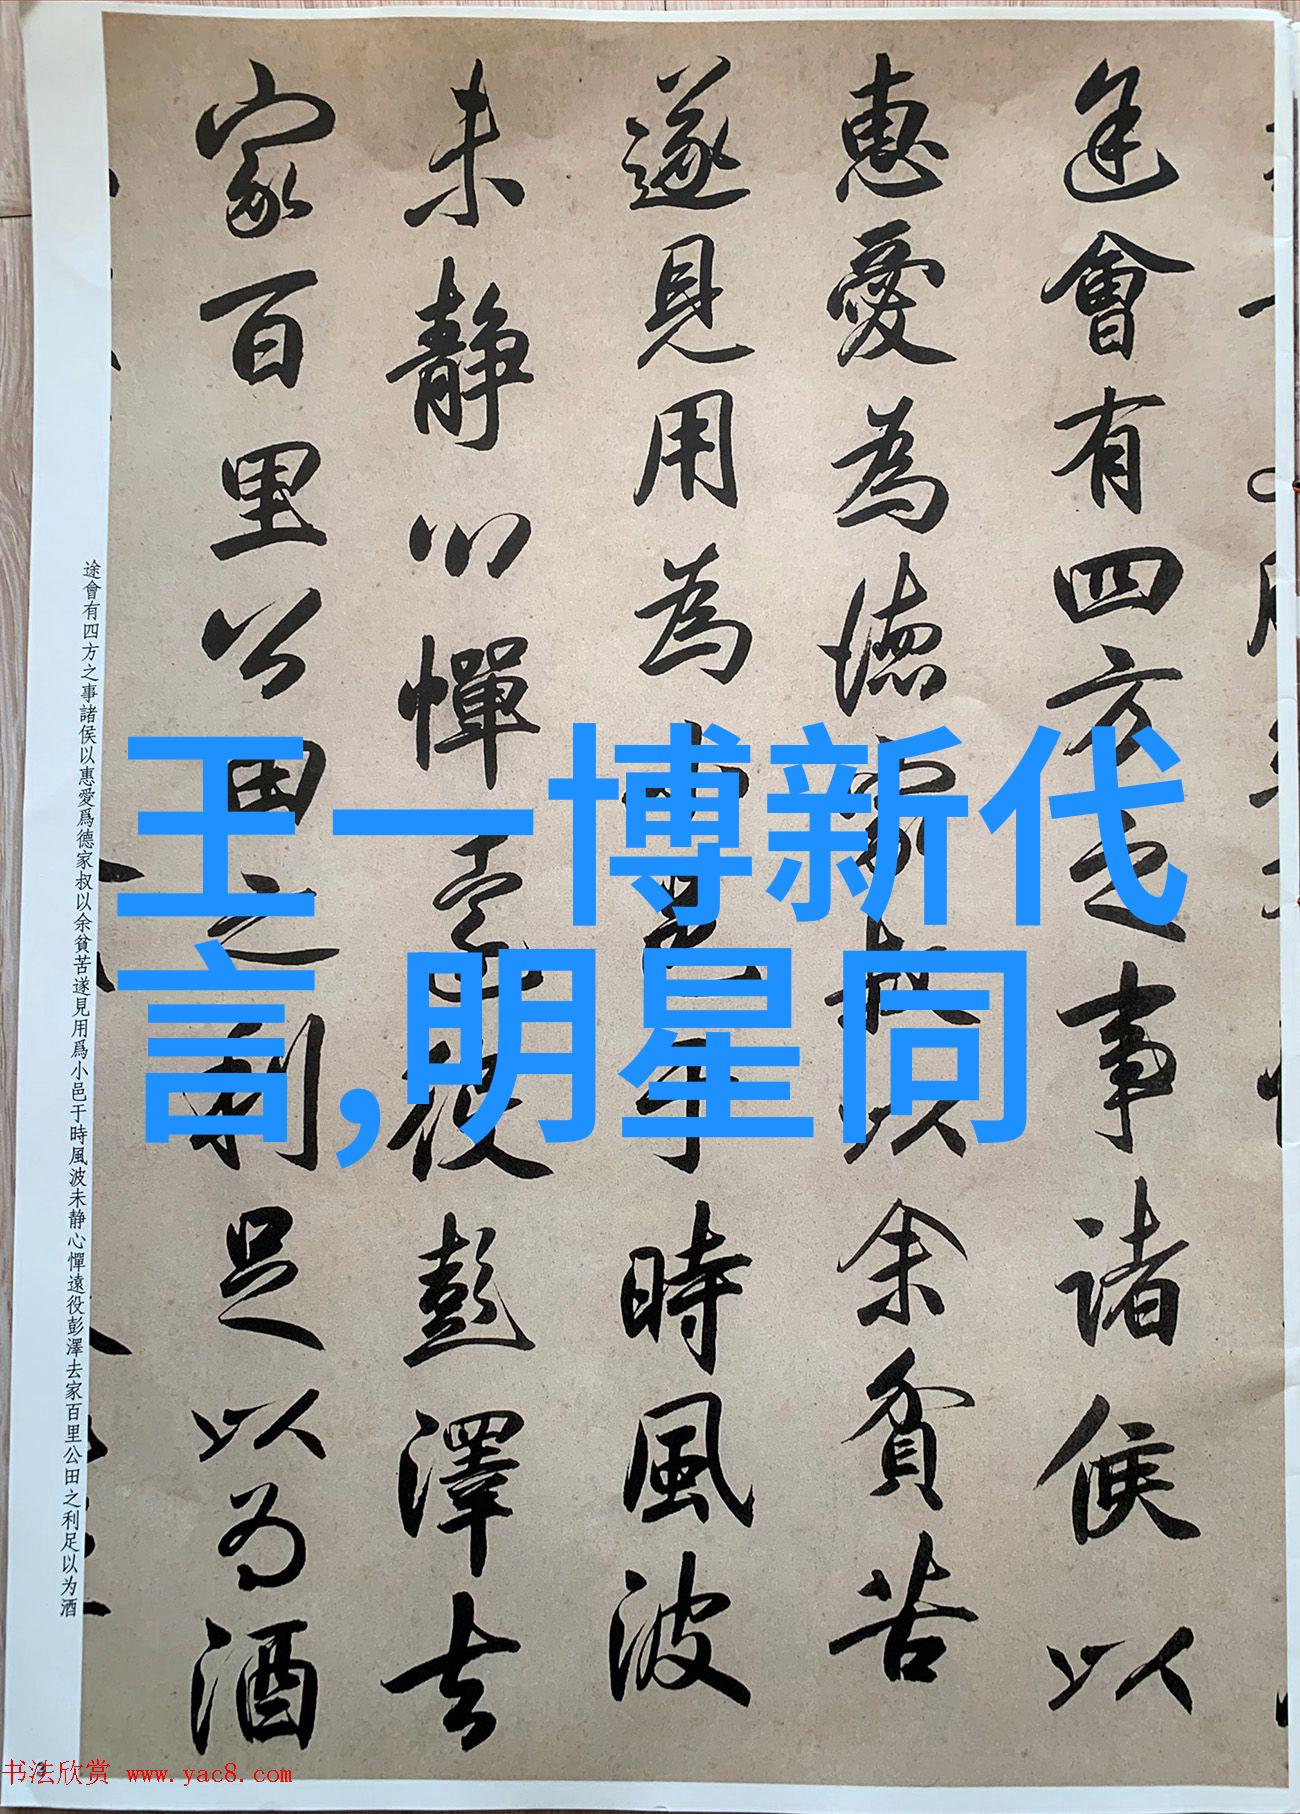 途會有四方之事諸侯以
惠愛為德家叔以余貧苦
遂見用為小邑于時風波
未靜心憚遠役彭澤去
家百里公田之利足以為酒
途會有四方之事諸侯以惠愛爲德家叔以余貧苦遂見用爲小邑于時風波未静心憚遠役彭澤去家百里公田之利足以为酒
王一博新代
言,明星同
3
书法欣赏 www.yac8.com